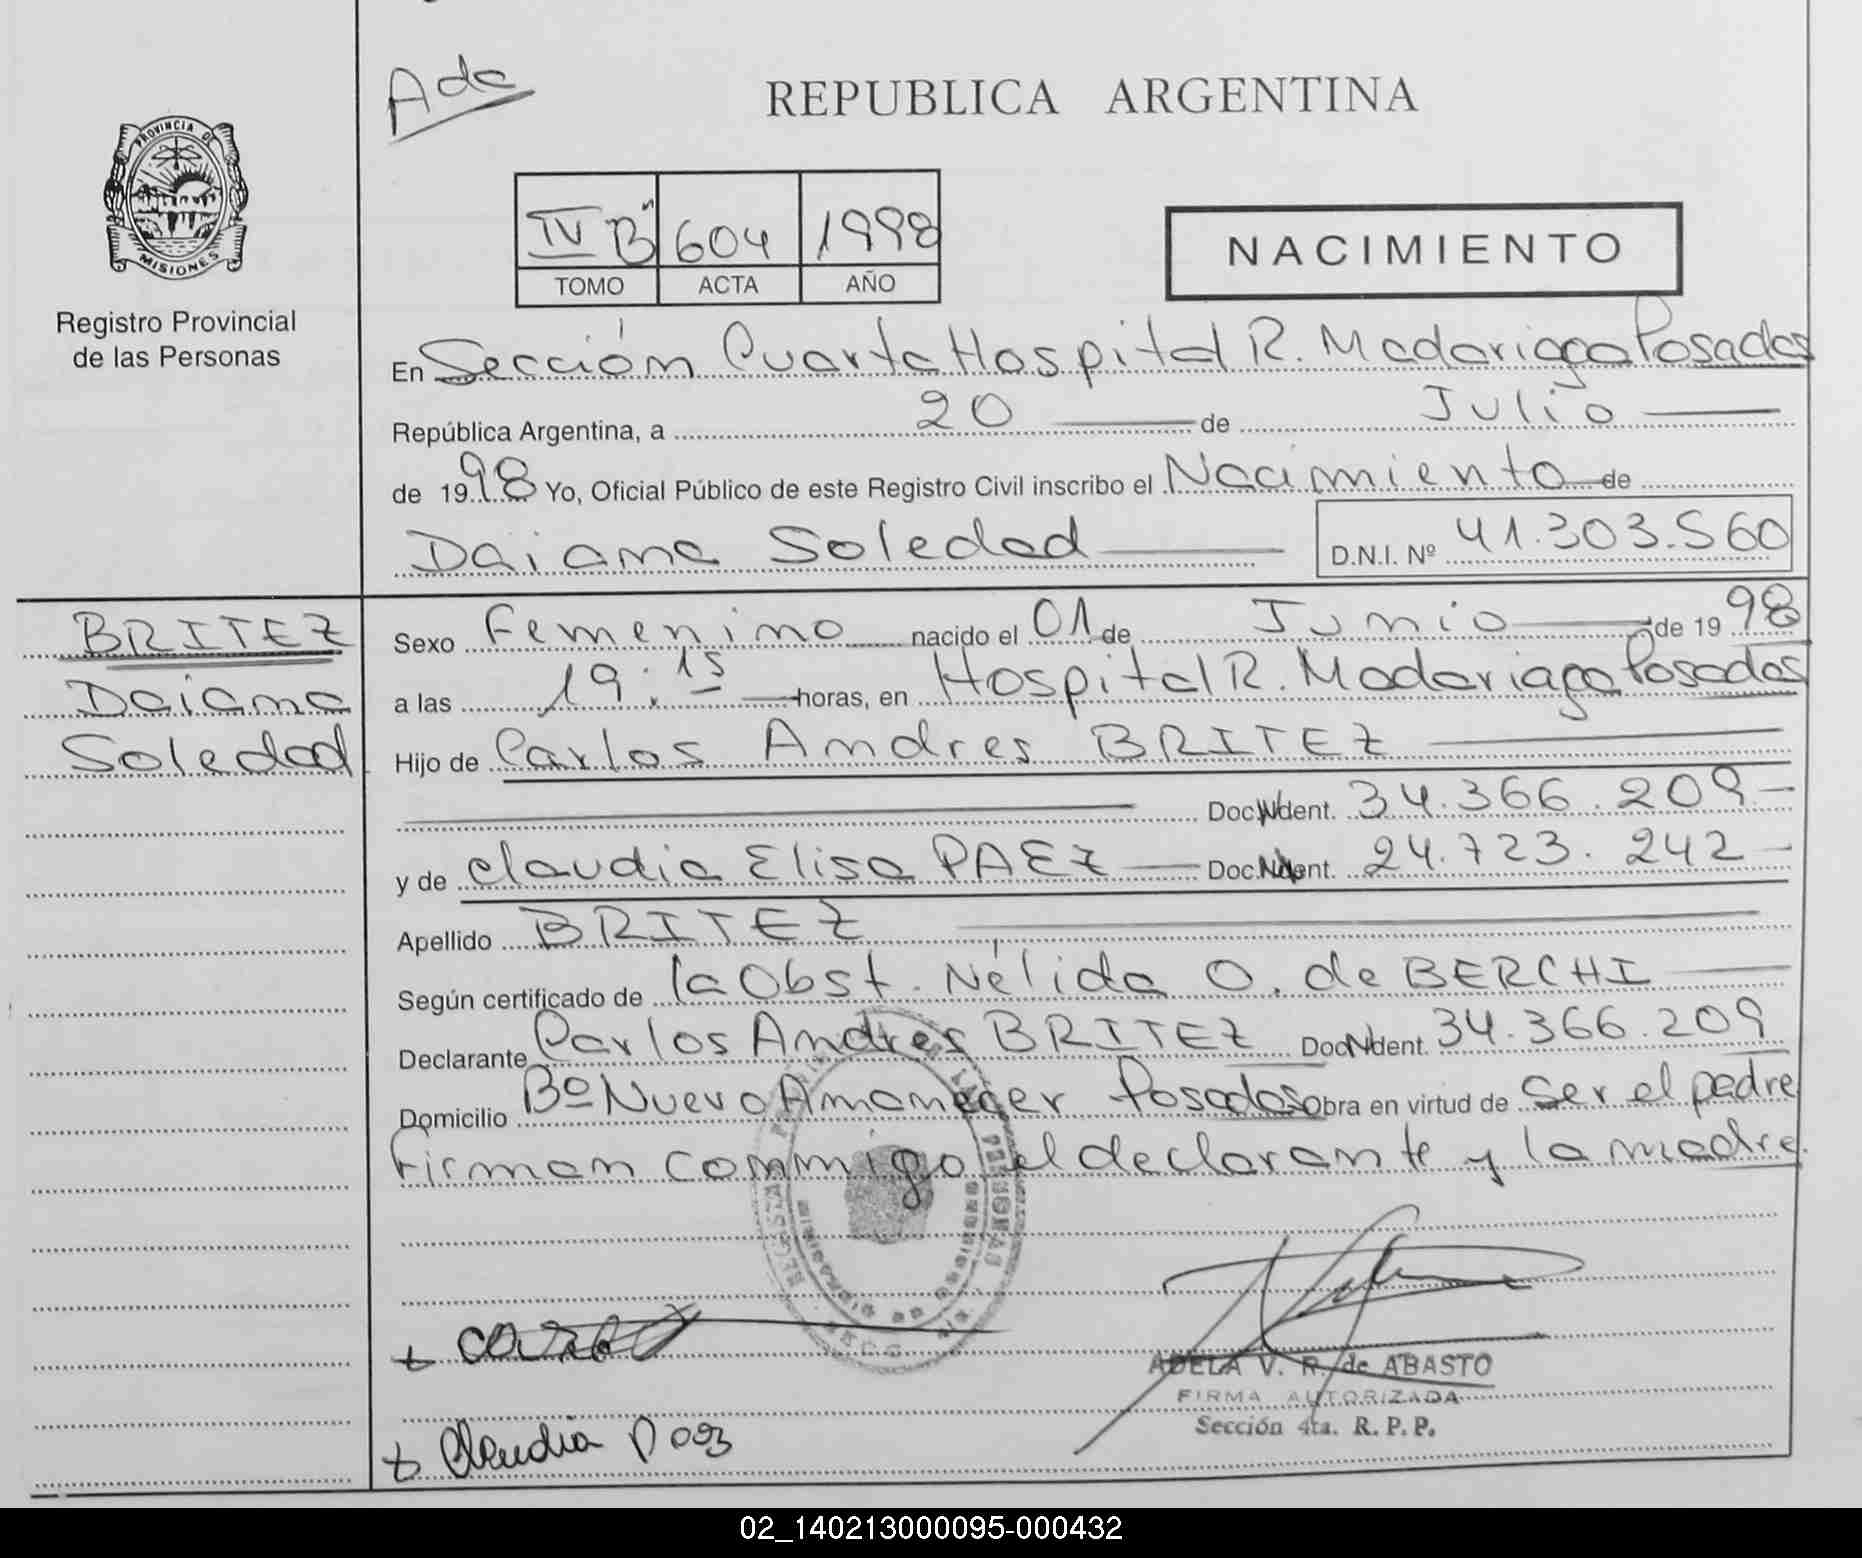 Ade
REPUBLICA ARGENTINA
PROVINCIA DE
MISIONES
Registro Provincial
de las Personas
IV "B" 604 1998
TOMO ACTA AÑO
NACIMIENTO
En Sección Cuarta Hospital R. Madariaga Posadas
República Argentina, a 20 de Julio
de 1998 Yo, Oficial Público de este Registro Civil inscribo el Nacimiento de
Daiana Soledad D.N.I. Nº 41.303.560
BRITEZ
Daiana
Soledad
Sexo Femenino nacido el 01 de Junio de 1998
a las 19:15 horas, en Hospital R. Madariaga Posadas
Hijo de Carlos Andres BRITEZ
Doc. Ident. 34.366.209
y de Claudia Elisa PAEZ Doc. Ident. 24.723.242
Apellido BRITEZ
Según certificado de la Obst. Nélida O. de BERCHI
Declarante Carlos Andres BRITEZ Doc. Ident. 34.366.209
Domicilio Bº Nuevo Amanecer Posadas obra en virtud de ser el padre
Firman conmigo el declarante y la madre.
Claudia Paez
ADELA V. R. de ABASTO
FIRMA AUTORIZADA
Sección 4ta. R. P. P.
02_140213000095-000432